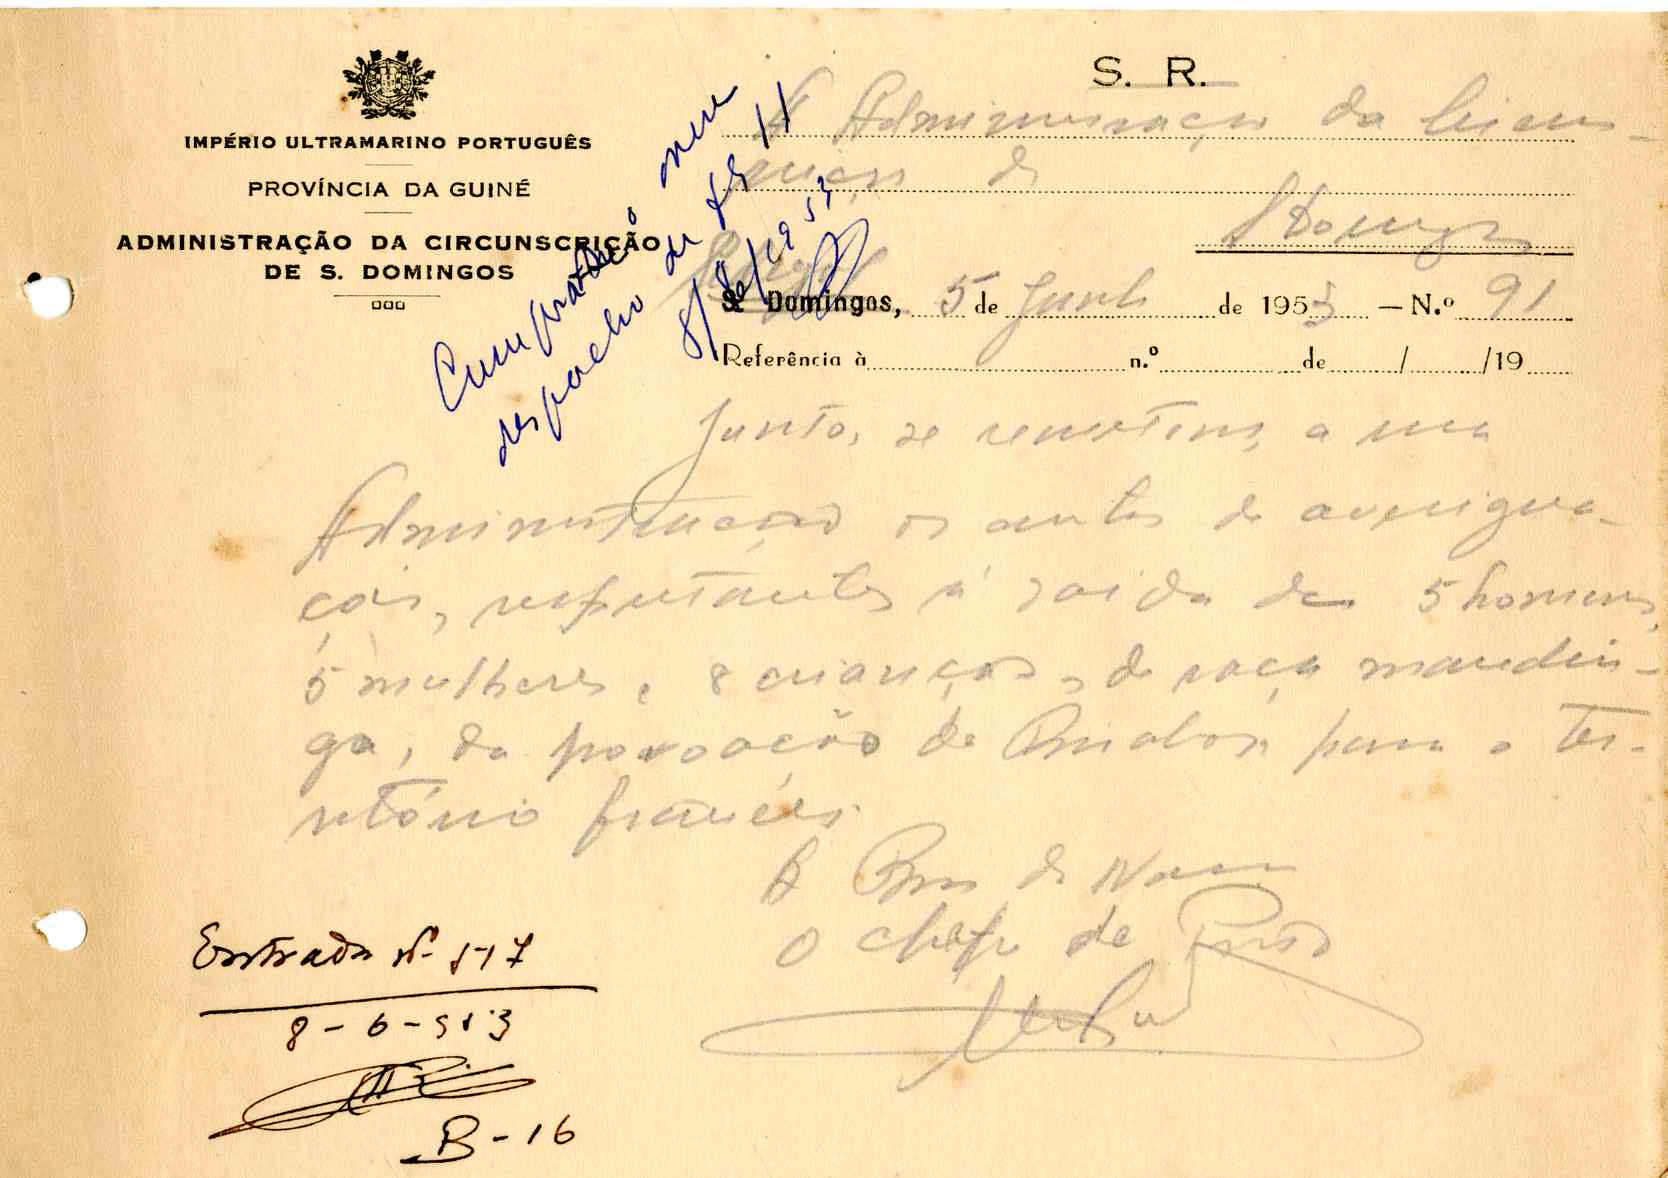 IMPÉRIO ULTRAMARINO PORTUGUÊS
PROVÍNCIA DA GUINÉ
ADMINISTRAÇÃO DA CIRCUNSCRIÇÃO
DE S. DOMINGOS
S. R.
Á Administração da Circuns-
crição de
S Domingos
S. Domingos, 5 de Junho de 1953 — N.º 91
Referência à n.º de / /19
Cumprado o meu
despacho de fls 11
8/6/1953
Junto, se remetem, a essa
Administração os autos de averigua-
ções, respeitantes á saida de 5 homens,
5 mulheres e 8 crianças, de raça mandin-
ga, da povoação de para o ter-
ritório francês.
A Bem da Nação
O chefe de Posto
Entrada Nº 517
8-6-953
B-16